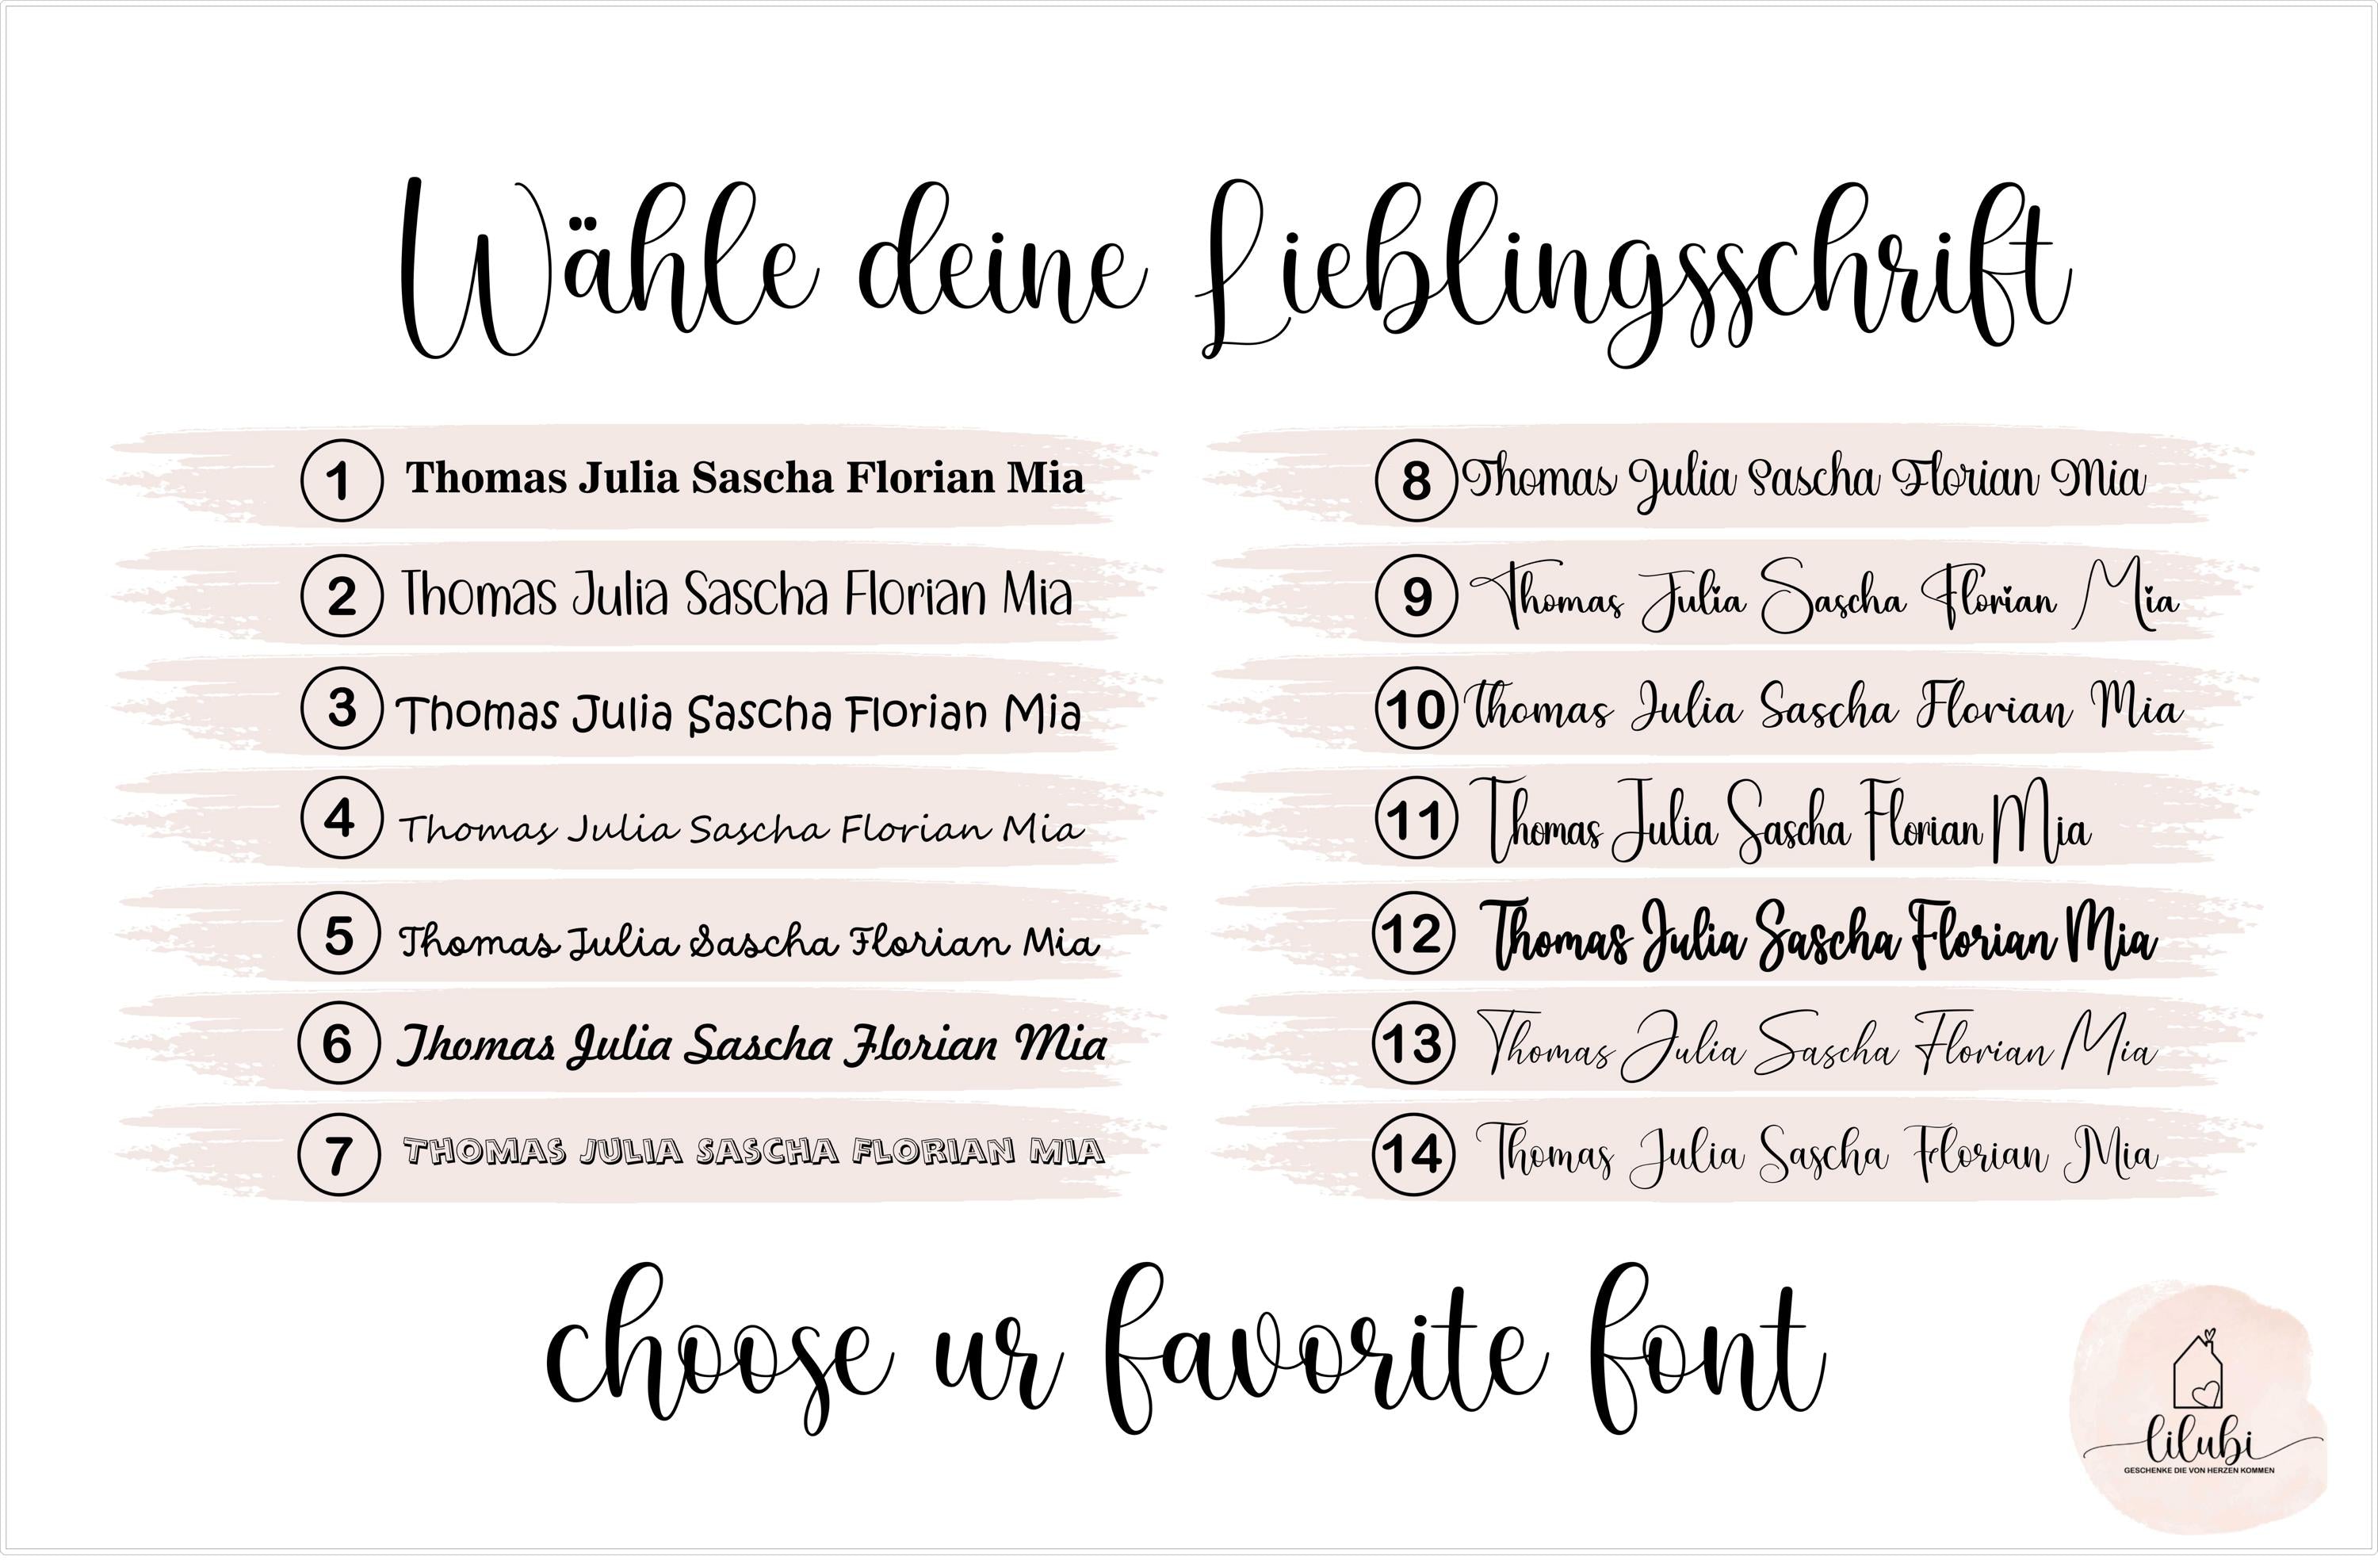 Wähle deine Lieblingsschrift
1 Thomas Julia Sascha Florian Mia
2 Thomas Julia Sascha Florian Mia
3 Thomas Julia Sascha Florian Mia
4 Thomas Julia Sascha Florian Mia
5 Thomas Julia Sascha Florian Mia
6 Thomas Julia Sascha Florian Mia
7 THOMAS JULIA SASCHA FLORIAN MIA
8 Thomas Julia Sascha Florian Mia
9 Thomas Julia Sascha Florian Mia
10 Thomas Julia Sascha Florian Mia
11 Thomas Julia Sascha Florian Mia
12 Thomas Julia Sascha Florian Mia
13 Thomas Julia Sascha Florian Mia
14 Thomas Julia Sascha Florian Mia
choose ur favorite font
lilubi
GESCHENKE DIE VON HERZEN KOMMEN